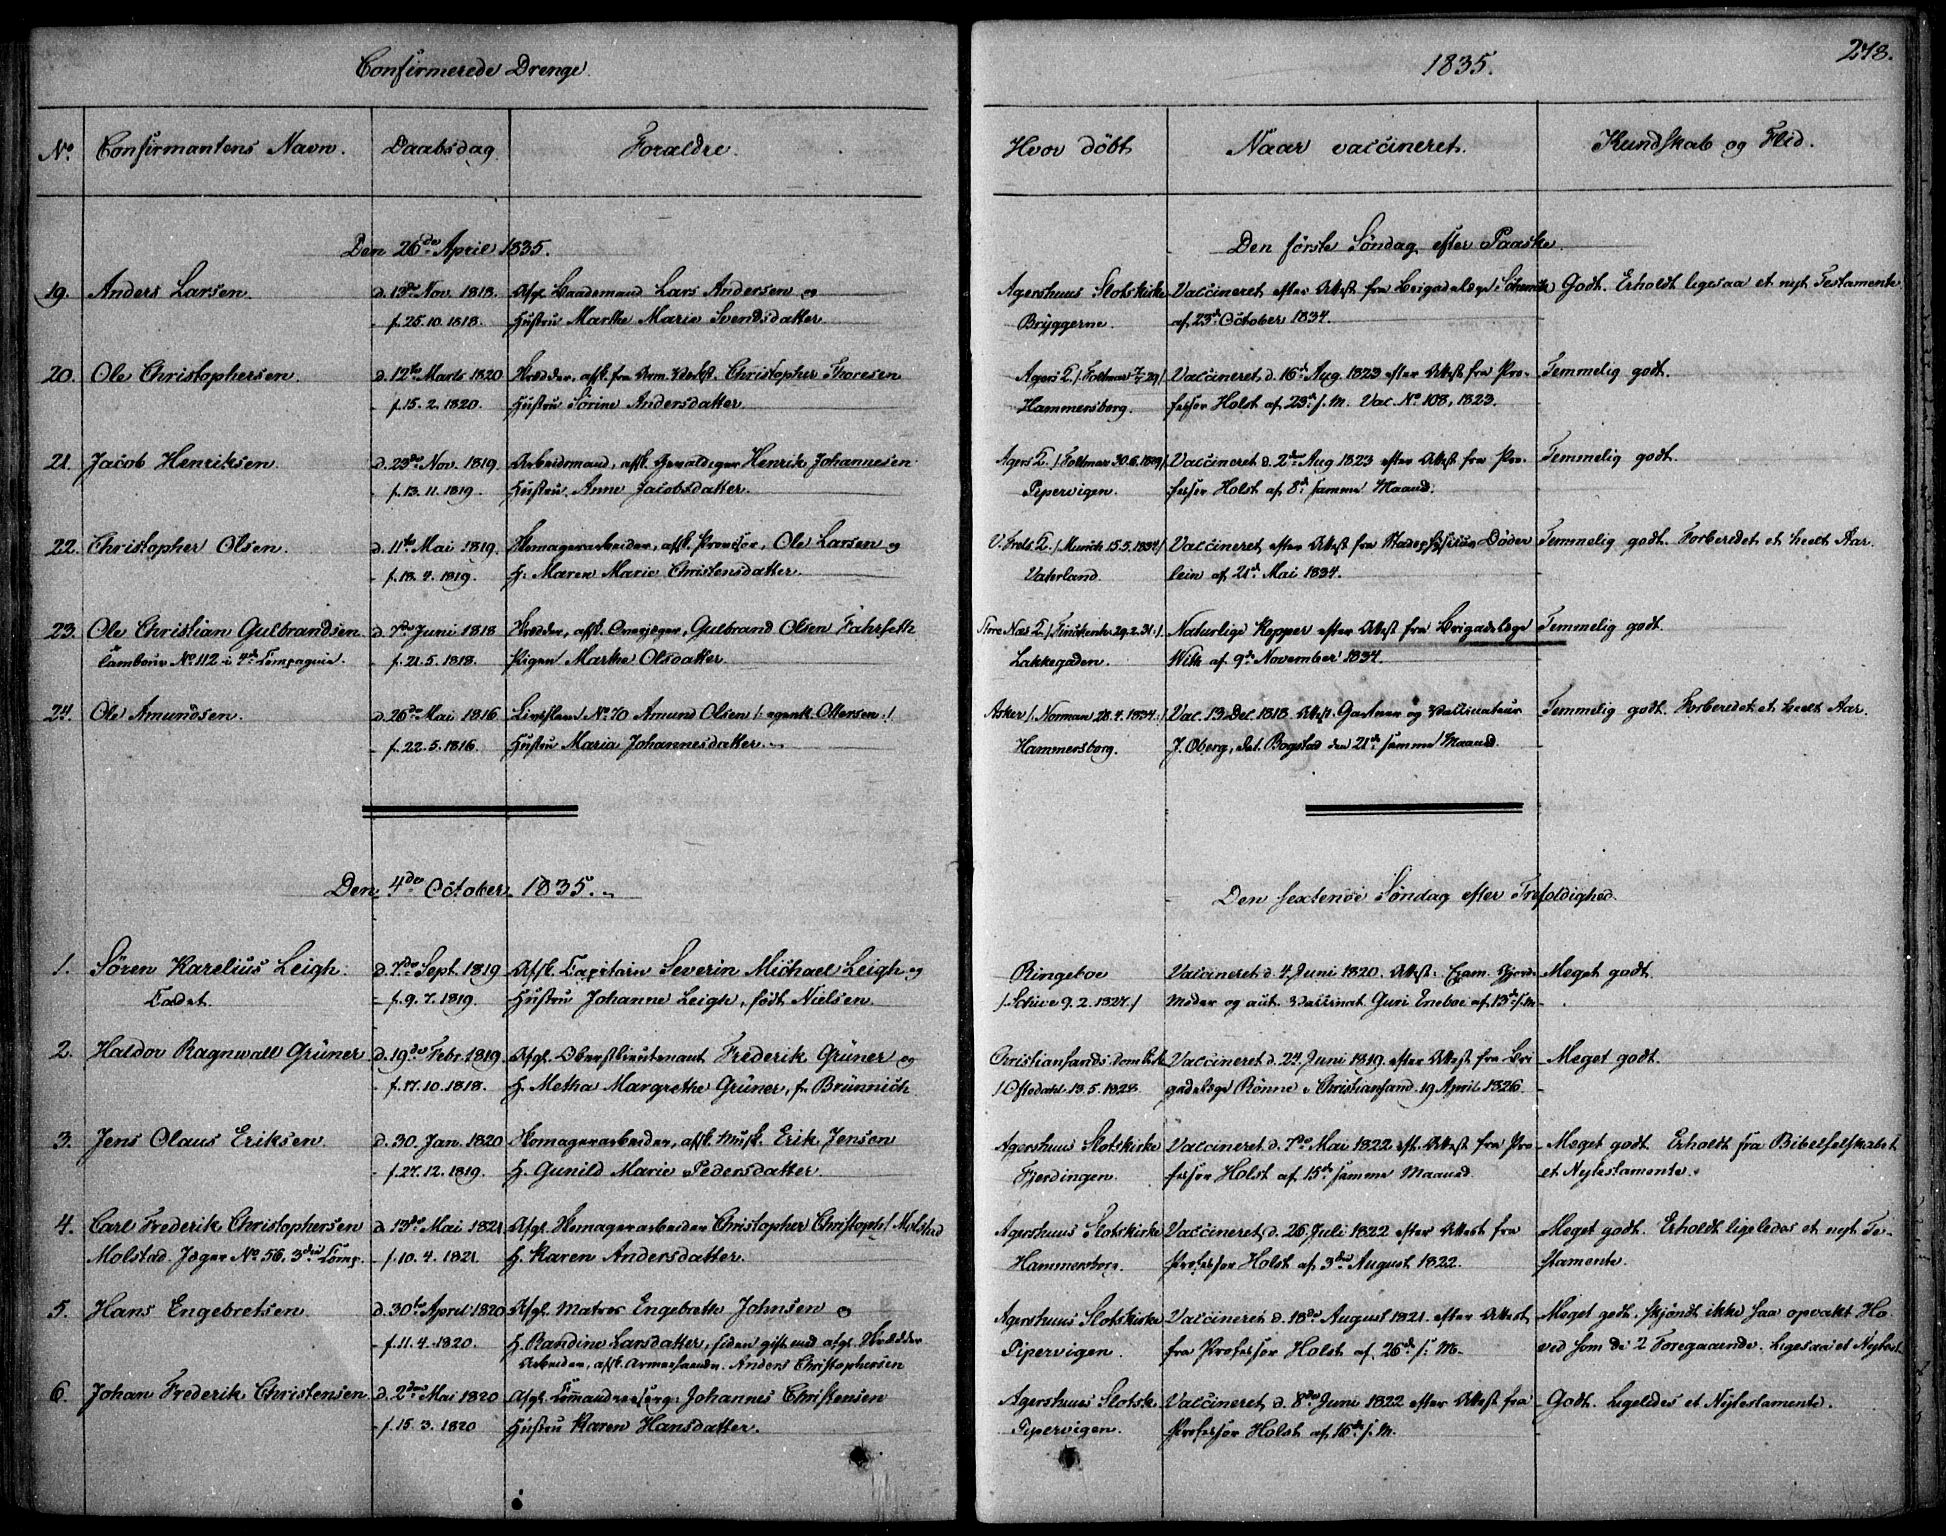 Confirmerede Drenge.
No. Confirmantens Navn. Daabsdag Forældre.
Den 26de April 1835.
19. Anders Larsen. d. 13de Nov. 1818. Afg. Baadsmand Lars Andersen og
f. 25.10.1818. Hustru Marthe Marie Svendsdatter
20. Ole Christophersen. d. 12te Marts 1820 Christopher Thoresen
f. 15.2.1820. Hustru Sörine Andersdatter.
21. Jacob Henriksen d. 23de Nov. 1819 Arbeidsmand, afsk. Gevaldiger Henrik Johannesen
f. 13.11.1819. Hustru Anne Jacobsdatter.
22. Christopher Olsen. d. 11te Mai 1819. afsk. Ole Larsen og
f. 18.4.1819. H. Maren Marie Christensdatter.
23. Ole Christian Gulbrandsen d. 7de Juni 1818 afsk. Gulbrand Olsen
Tambour No 112 i 4de Compagnie. f. 21.5.1818. Pigen Marthe Olsdatter
24. Ole Amundsen. d. 26de Mai 1816 No 70 Amund Olsen /: egentl. Ottersen :/
f. 22.5.1816. Hustru Maria Johannesdatter.
Den 4de October 1835.
1. Sören Karelius Leigh. d. 7de Sept. 1819 Afsk. Capitain Severin Michael Leigh og
Cadet. f. 9.7.1819. Hustru Johanne Leigh, födt Nielsen.
2. Haldor Ragnwall Grüner d. 19de Febr. 1819 Afg. Oberstlieutenant Frederik Grüner og
f. 17.10.1818. H. Metha Margrethe Grüner, f. Brünnich
3. Jens Olaus Eriksen d. 30. Jan. 1820 afsk. Musk. Erik Jensen
f. 27.12.1819. H. Gunild Marie Pedersdatter.
4. Carl Frederik Christophersen d. 13de Mai 1821 Afg. Christopher Christoph. Molstad
Molstad. Jæger No. 56. 3die Comp. f. 10.4.1821. H. Karen Andersdatter.
5. Hans Engebretsen d. 30te April 1820 Afg. Matros Engebreth Johnsen og
f. 11.4.1820. H. Randine Larsdatter, siden gift med afg.
Arbeider, afsk. Anders Christophersen
6. Johan Frederik Christensen d. 2den Mai 1820 Afg. Johannes Christensen
f. 15.3.1820 Hustru Karen Hansdatter.
1835. 278.
Hvor döbt Naar vaccineret. Kundskab og Flid.
Den förste Söndag efter Paaske
Agershuus Slotskirke Vaccineret efter Attest fra Brigadelæge Godt. Erholdt ligesaa et nyt Testamente
Bryggerne. af 23de October 1834.
Agers K. Vaccineret d. 16de Aug. 1823 efter Attest fra Pro- Temmelig godt.
Hammersborg. fessor Holst af 23de s. M. Vac. No 108, 1823.
Agers K. Vaccineret d. 2den Aug 1823 efter Attest fra Pro- Temmelig godt.
Pipervigen. fessor Holst af 8de samme Maaned.
V. Frels. K. /: Munch 15.5.1834 :/ Vaccineret efter Attest fra Stadsphysicus Döder Temmelig godt. Forberedet et heelt Aar.
Vaterland. lein af 21de Mai 1834.
Store Næs K. Naturlige Kopper efter Attest fra Brigadelæge Temmelig godt.
Lakkegaden. With af 9de November 1834.
Asker /: Norman 28.4.1834 :/ Vac. 13 Dec. 1818. Attest. Gartner og Vaccinateur Temmelig godt. Forberedet et heelt Aar.
Hammersborg. J. Oberg, dat. Bogstad den 21de samme Maaned.
Den sextende Söndag efter Trefoldighed.
Ringeboe Vaccineret d. 4 Juni 1820. Attest. Exam. Gjorde- Meget godt.
9.2.1827 :/ Moder og aut. Vaccinat. Guri Eneboe af 13de s. M
Christiansands Domkirke Vaccineret d. 24 Juni 1819. efter Attest fra Bri Meget godt.
/: Oftedahl 13.5.1828 gadelæge Rönne i Christiansand. 19 April 1826
Agershuus Slotskirke Vaccineret d. 7de Mai 1822 eft. Attest fra Pro- Meget godt. Erholdt fra Bibelselskabet
Fjerdingen. fessor Holst af 15de samme Maaned. et Nytestamente.
Agershuus Slotskirke Vaccineret d. 26 Juli 1822 efter Attest fra Meget godt. Erholdt ligeledes et nyt Te-
Hammersborg. Professor Holst af 3die August 1822. stamente.
Agershuus Slotskirke Vaccineret d. 18de August 1821. efter Attest Meget godt. skjöndt ikke saa opvakt Ho
Pipervigen. fra Professor Holst af 26de s. M. ved som de 2 Foregaaende. Ligesaa et Nytest.
Agershuus Slotsk. Vaccineret d. 8de Juni 1822 efter Attest fra Godt. Ligeledes et Nytestamente.
Pipervigen. Professor Holst af 16de s. M.